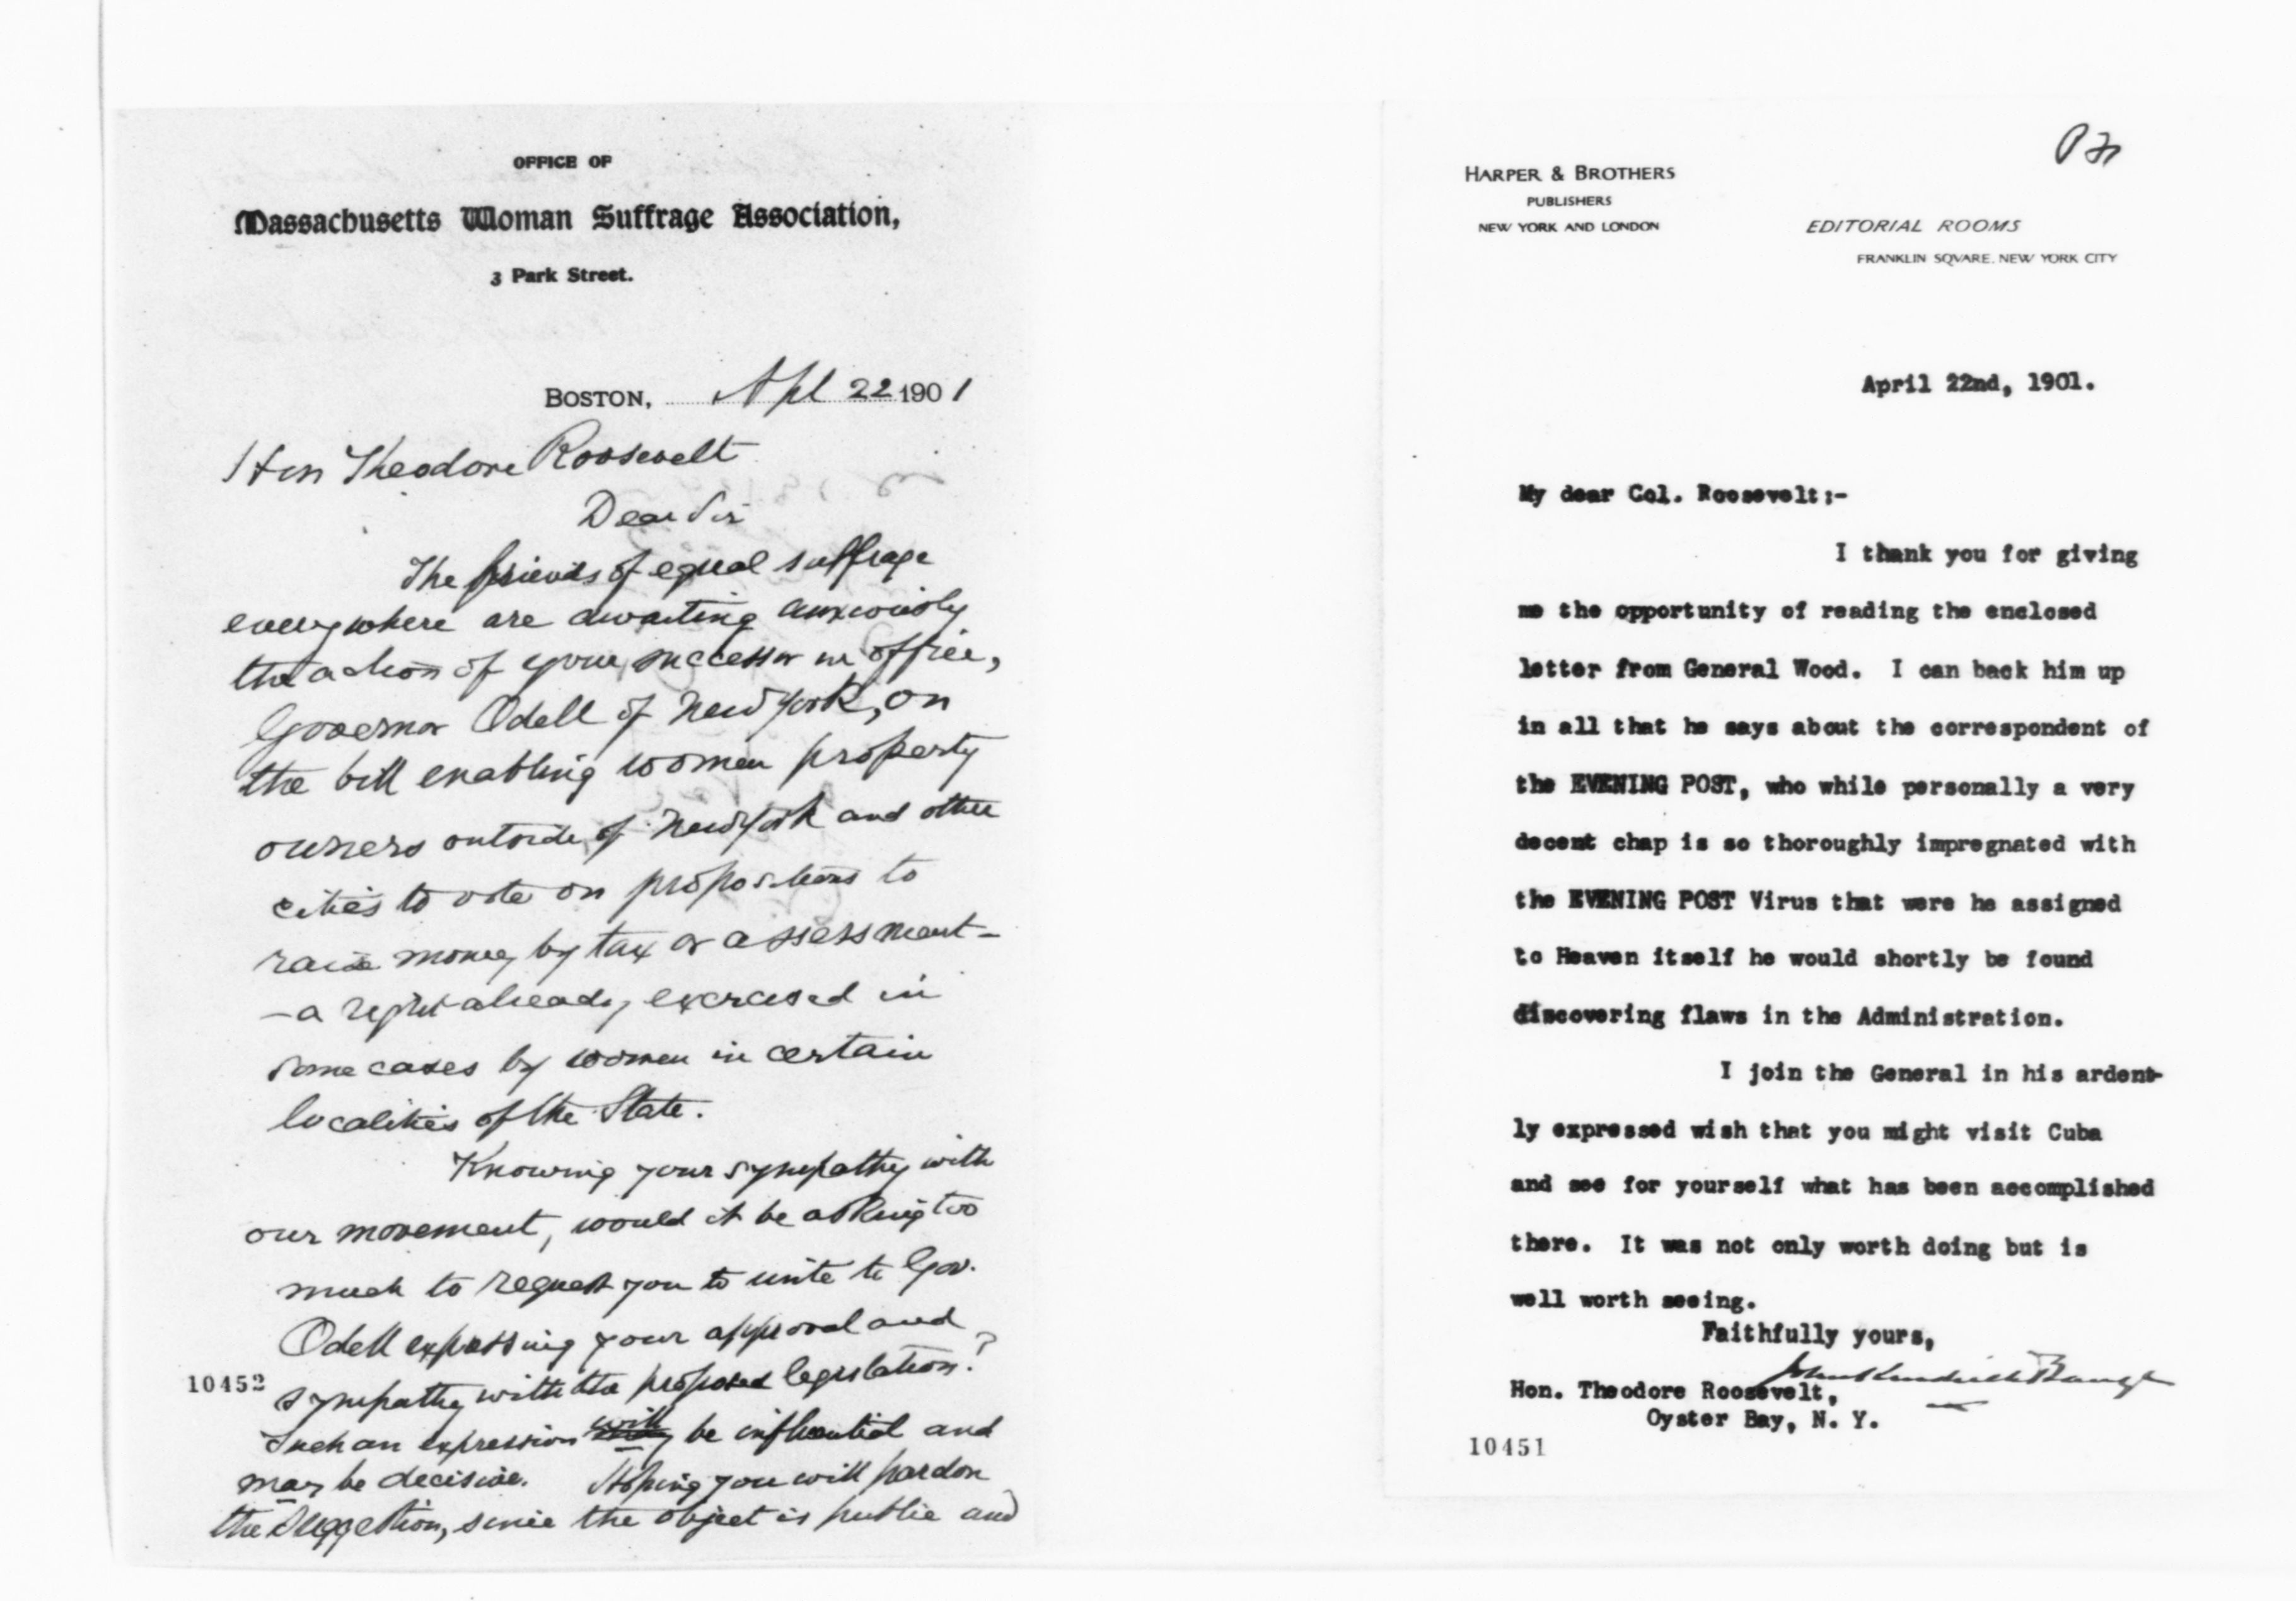 OFFICE OF
Massachusetts Woman Suffrage Association,
3 Park Street.
BOSTON, Apl 22 1901
Hon Theodore Roosevelt
Dear Sir
The friends of equal suffrage
everywhere are awaiting anxiously
the action of your successor in office,
Governor Odell of New York, on
the bill enabling women property
owners outside of New York and other
cities to vote on propositions to
raise money by tax or assessment -
- a right already exercised in
some cases by women in certain
localities of the State.
Knowing your sympathy with
our movement, would it be asking too
much to request you to write to Gov.
Odell expressing your approval and
sympathy with the proposed legislation?
Such an expression will be influential and
may be decisive. Hoping you will pardon
the suggestion, since the object is public and
10452
HARPER & BROTHERS
PUBLISHERS
NEW YORK AND LONDON
EDITORIAL ROOMS
FRANKLIN SQVARE. NEW YORK CITY
April 22nd, 1901.
My dear Col. Roosevelt:-
I thank you for giving
me the opportunity of reading the enclosed
letter from General Wood. I can back him up
in all that he says about the correspondent of
the EVENING POST, who while personally a very
decent chap is so thoroughly impregnated with
the EVENING POST Virus that were he assigned
to Heaven itself he would shortly be found
discovering flaws in the Administration.
I join the General in his ardent-
ly expressed wish that you might visit Cuba
and see for yourself what has been accomplished
there. It was not only worth doing but is
well worth seeing.
Faithfully yours,
John Kendrick Bangs
Hon. Theodore Roosevelt,
Oyster Bay, N. Y.
10451